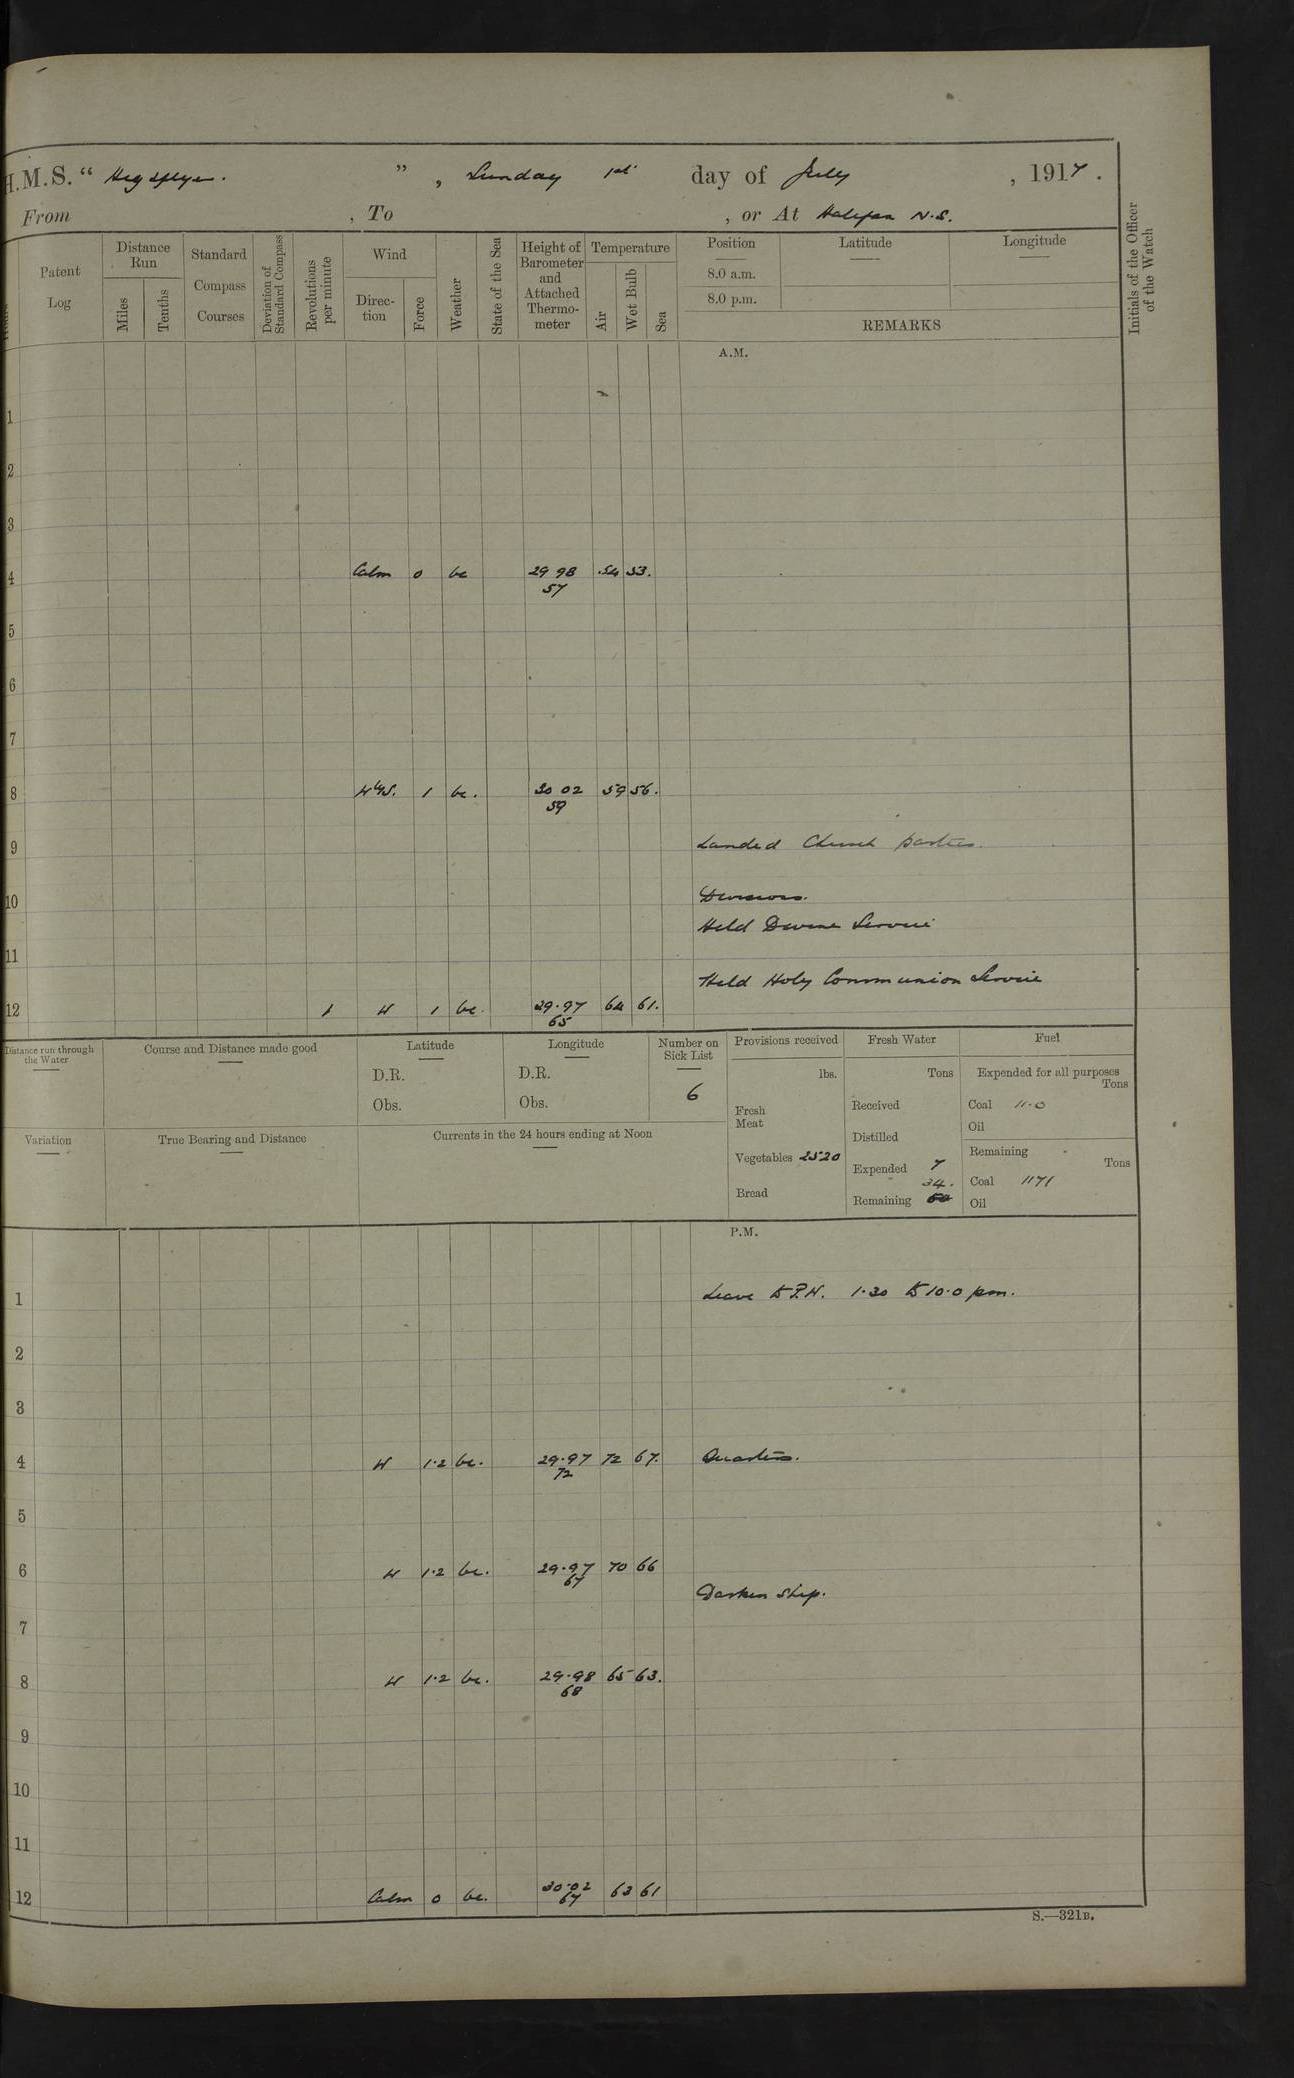 H.M.S. “ Highflyer. ” , Sunday 1st day of July , 1917 .
From , To , or At Halifax N.S.
Patent Log
Distance Run
Miles
Tenths
Standard Compass Courses
Deviation of Standard Compass
Revolutions per minute
Wind
Direc-tion
Force
Weather
State of the Sea
Height of Barometer and Attached Thermo-meter
Temperature
Air
Wet Bulb
Sea
Position
8.0 a.m.
8.0 p.m.
Latitude
Longitude
REMARKS
Initials of the Officer of the Watch
A.M.
1
2
3
4 Calm 0 bc 29 98 54 53.
57
5
6
7
8 WbyS. 1 bc. 30 02 59 56.
59
9 Landed Church parties.
10 Divisions.
Held Divine Service
11
Held Holy Communion Service
12 1 W 1 bc. 29.97 64 61.
65
Distance run through the Water
Course and Distance made good
Latitude
D.R.
Obs.
Longitude
D.R.
Obs.
Number on Sick List
6
Provisions received
lbs.
Fresh Meat
Vegetables 2520
Bread
Fresh Water
Tons
Received
Distilled
Expended 7
34.
Remaining
Fuel
Expended for all purposes
Tons
Coal 11.0
Oil
Remaining
Tons
Coal 1171
Oil
Variation
True Bearing and Distance
Currents in the 24 hours ending at Noon
P.M.
1 Leave to P.W. 1.30 to 10.0 pm.
2
3
4 W 1.2 bc. 29.97 72 67. Quarters.
72
5
6 W 1.2 bc. 29.97 70 66
67
Darken ship.
7
8 W 1.2 bc. 29.98 65 63.
68
9
10
11
12 Calm 0 bc. 30.02 63 61
67
S.—321B.